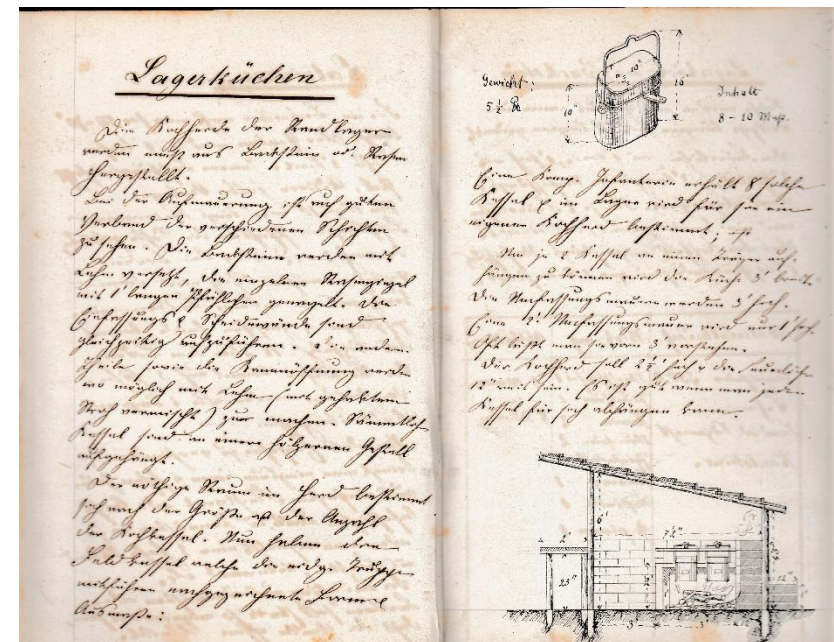 Lagerküchen
Die Kochherde der Standlager
werden meist aus Backstein od. Rasen
hergestellt.
Bei der Aufmauerung ist auf guten
Verband der verschiedenen Schichten
zu sehen. Die Backsteine werden mit
Lehm versetzt, die einzelnen Rasenziegel
mit 1' langen Pfählchen genagelt. Die
Einfassungs & Scheidewände sind
gleichzeitig aufzuführen. Die andern
Theile, sowie die Kaminöffnung werden
wo möglich mit Lehm (mit gehacktem
Stroh vermischt) zu machen. Sämmtliche
Kessel sind an einem hölzernen Gestell
aufgehängt.
Der nöthige Raum im Herd bestimmt
sich nach der Größe & der Anzahl
der Kochkessel. Nun haben die
Feldkessel welche die eidg. Truppen
mitführen nachgezeichnete Form &
Ausmaße:
Gewicht:
5 ½ ℔
10"
16"
10"
Inhalt
8 - 10 Maß.
Eine Komp. Infanterie erhält 8 solche
Kessel & im Lager wird für sie ein
eigener Kochherd bestimmt;
Um je 2 Kessel an einen Träger auf-
hängen zu können wird die Küche 3' breit.
Die Umfassungsmauern werden 3' hoch.
Eine Umfassungsmauer wird nur 1' hoch.
Oft läßt man sie vorn 3' vorstehen.
Der Kochherd soll 2½' hoch & die
12" weit sein. Es ist gut wenn man jeden
Kessel für sich abhängen kann.
6'
2'
7½"
25"
12"
3'
3'